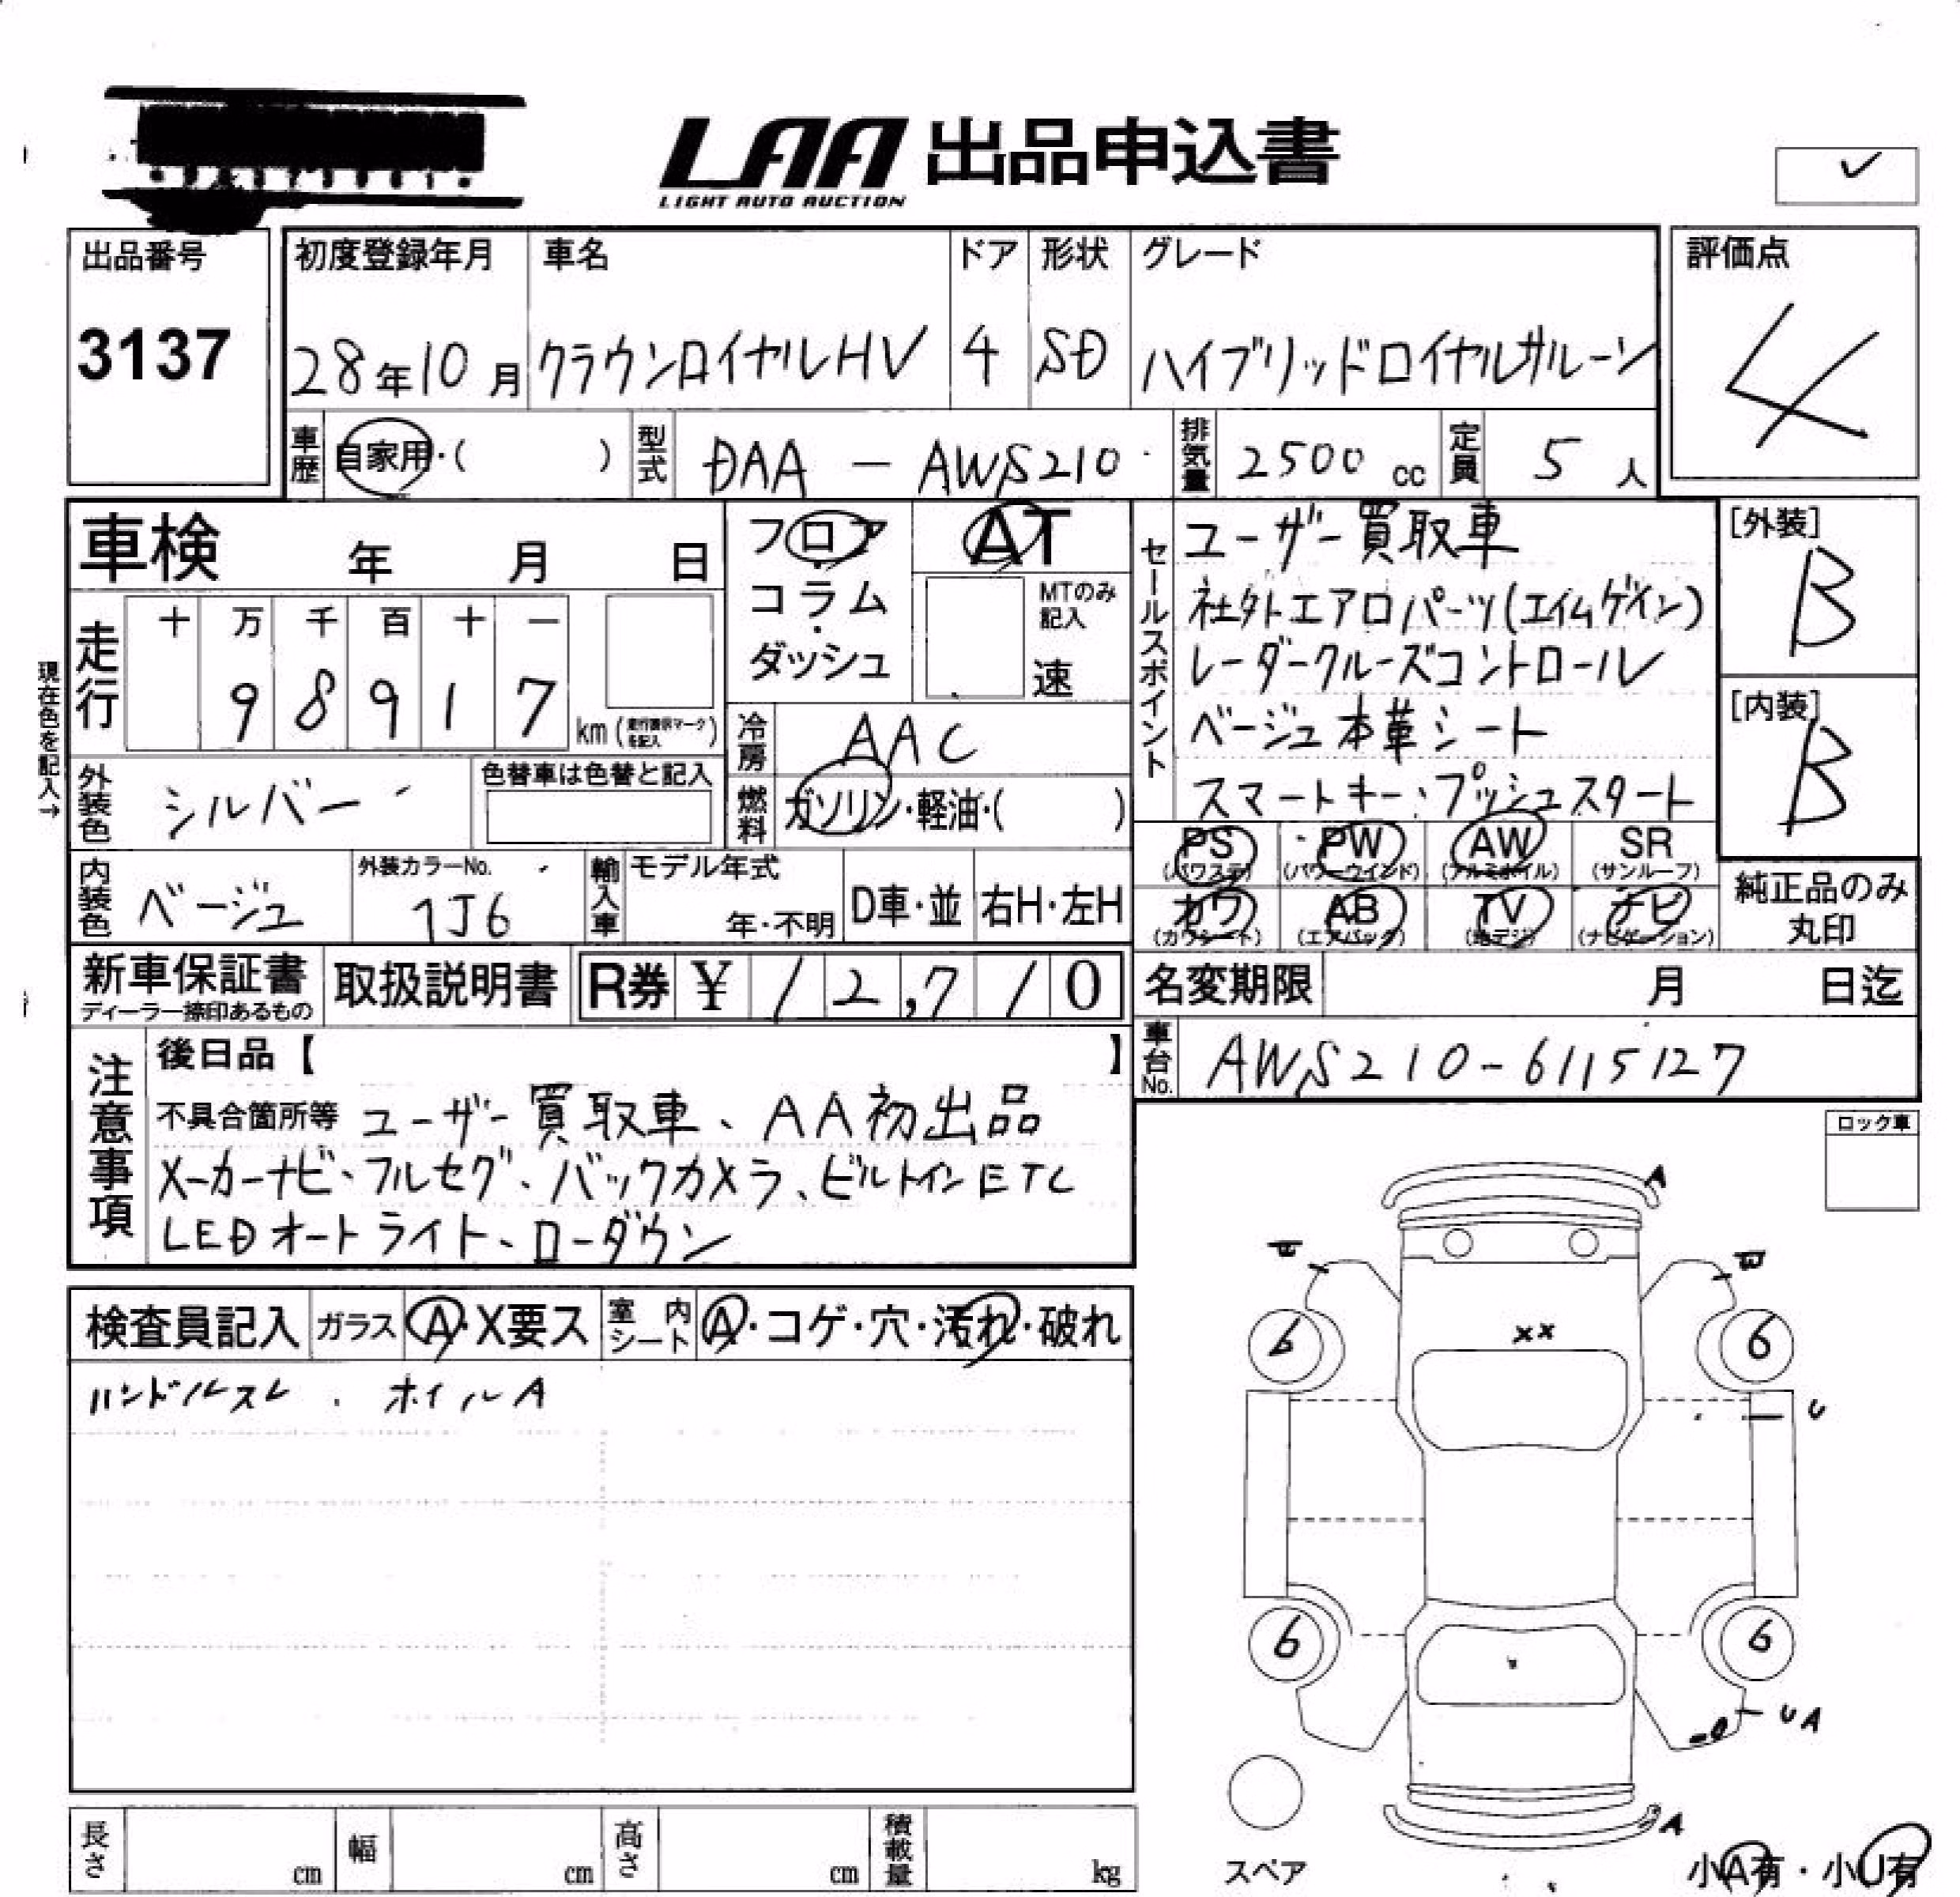 LAA 出品申込書
LIGHT AUTO AUCTION
✓
出品番号
3137
初度登録年月
28年10月
車名
クラウンロイヤルHV
ドア
4
形状
SD
グレード
ハイブリッドロイヤルサルーン
評価点
4
車歴 自家用・( )
型式 DAA - AWS210
排気量 2500 cc
定員 5 人
車検 年 月 日
フロア・コラム・ダッシュ
AT
MTのみ記入
速
セールスポイント
ユーザー買取車
社外エアロパーツ(エイムゲイン)
レーダークルーズコントロール
ベージュ本革シート
スマートキー・プッシュスタート
[外装]
B
[内装]
B
現在色を記入→
走行 十 万 千 百 十 一
9 8 9 1 7 km
冷房 AAC
外装色 シルバー
色替車は色替と記入
燃料 ガソリン・軽油・( )
内装色 ベージュ
外装カラーNo.
1J6
輸入車 モデル年式
年・不明
D車・並
右H・左H
PS (パワステ)
PW (パワーウインド)
AW (アルミホイル)
SR (サンルーフ)
カワ (カワシート)
AB (エアバック)
TV (地デジ)
ナビ (ナビゲーション)
純正品のみ
丸印
新車保証書
ディーラー捺印あるもの
取扱説明書
R券 ¥ 12,710
名変期限 月 日迄
車台No. AWS210-6115127
注意事項
後日品【 】
不具合箇所等 ユーザー買取車、AA初出品
メーカーナビ、フルセグ、バックカメラ、ビルトインETC
LEDオートライト、ローダウン
ロック車
検査員記入
ガラス A・X要ス
室内シート A・コゲ・穴・汚れ・破れ
ハンドルスレ . ホイルA
A
××
6
6
U
6
6
UA
A
スペア
小A有・小U有
長さ cm
幅 cm
高さ cm
積載量 kg